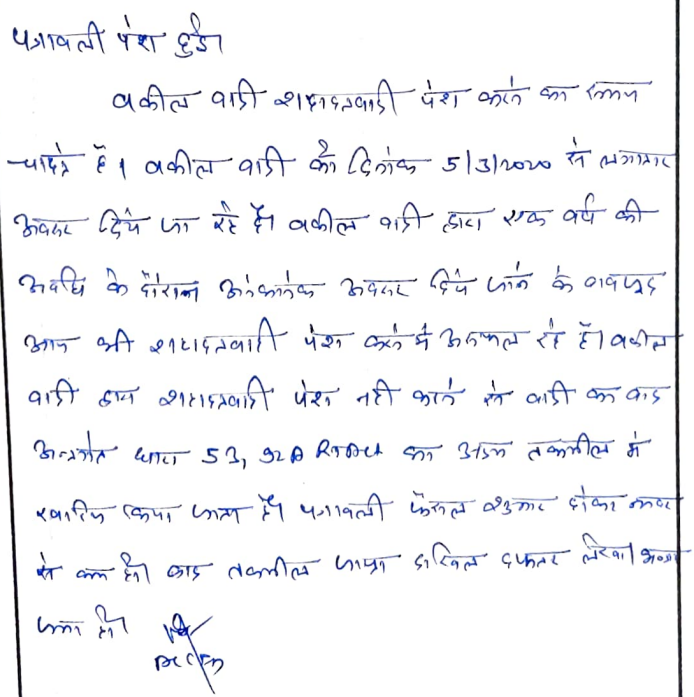 पत्रावली पेश हुई।
वकील वादी शहादतवादी पेश करने का समय
चाहते है। वकील वादी को दिनांक 5/3/2020 से लगातार
अवसर दिये जा रहे है। वकील वादी द्वारा एक वर्ष की
अवधि के दौरान अनेकानेक अवसर दिये जाने के बावजूद
आज भी शहादतवादी पेश करने मे असफल रहे है। वकील
वादी द्वारा शहादतवादी पेश नही करने से वादी का वाद
अन्तर्गत धारा 53, 92A का अदम तकमील मे
खारिज किया जाता है। पत्रावली फैसल शुमार होकर नम्बर
से कम हो। बाद तकमील दाखिल दफ्तर
हो।